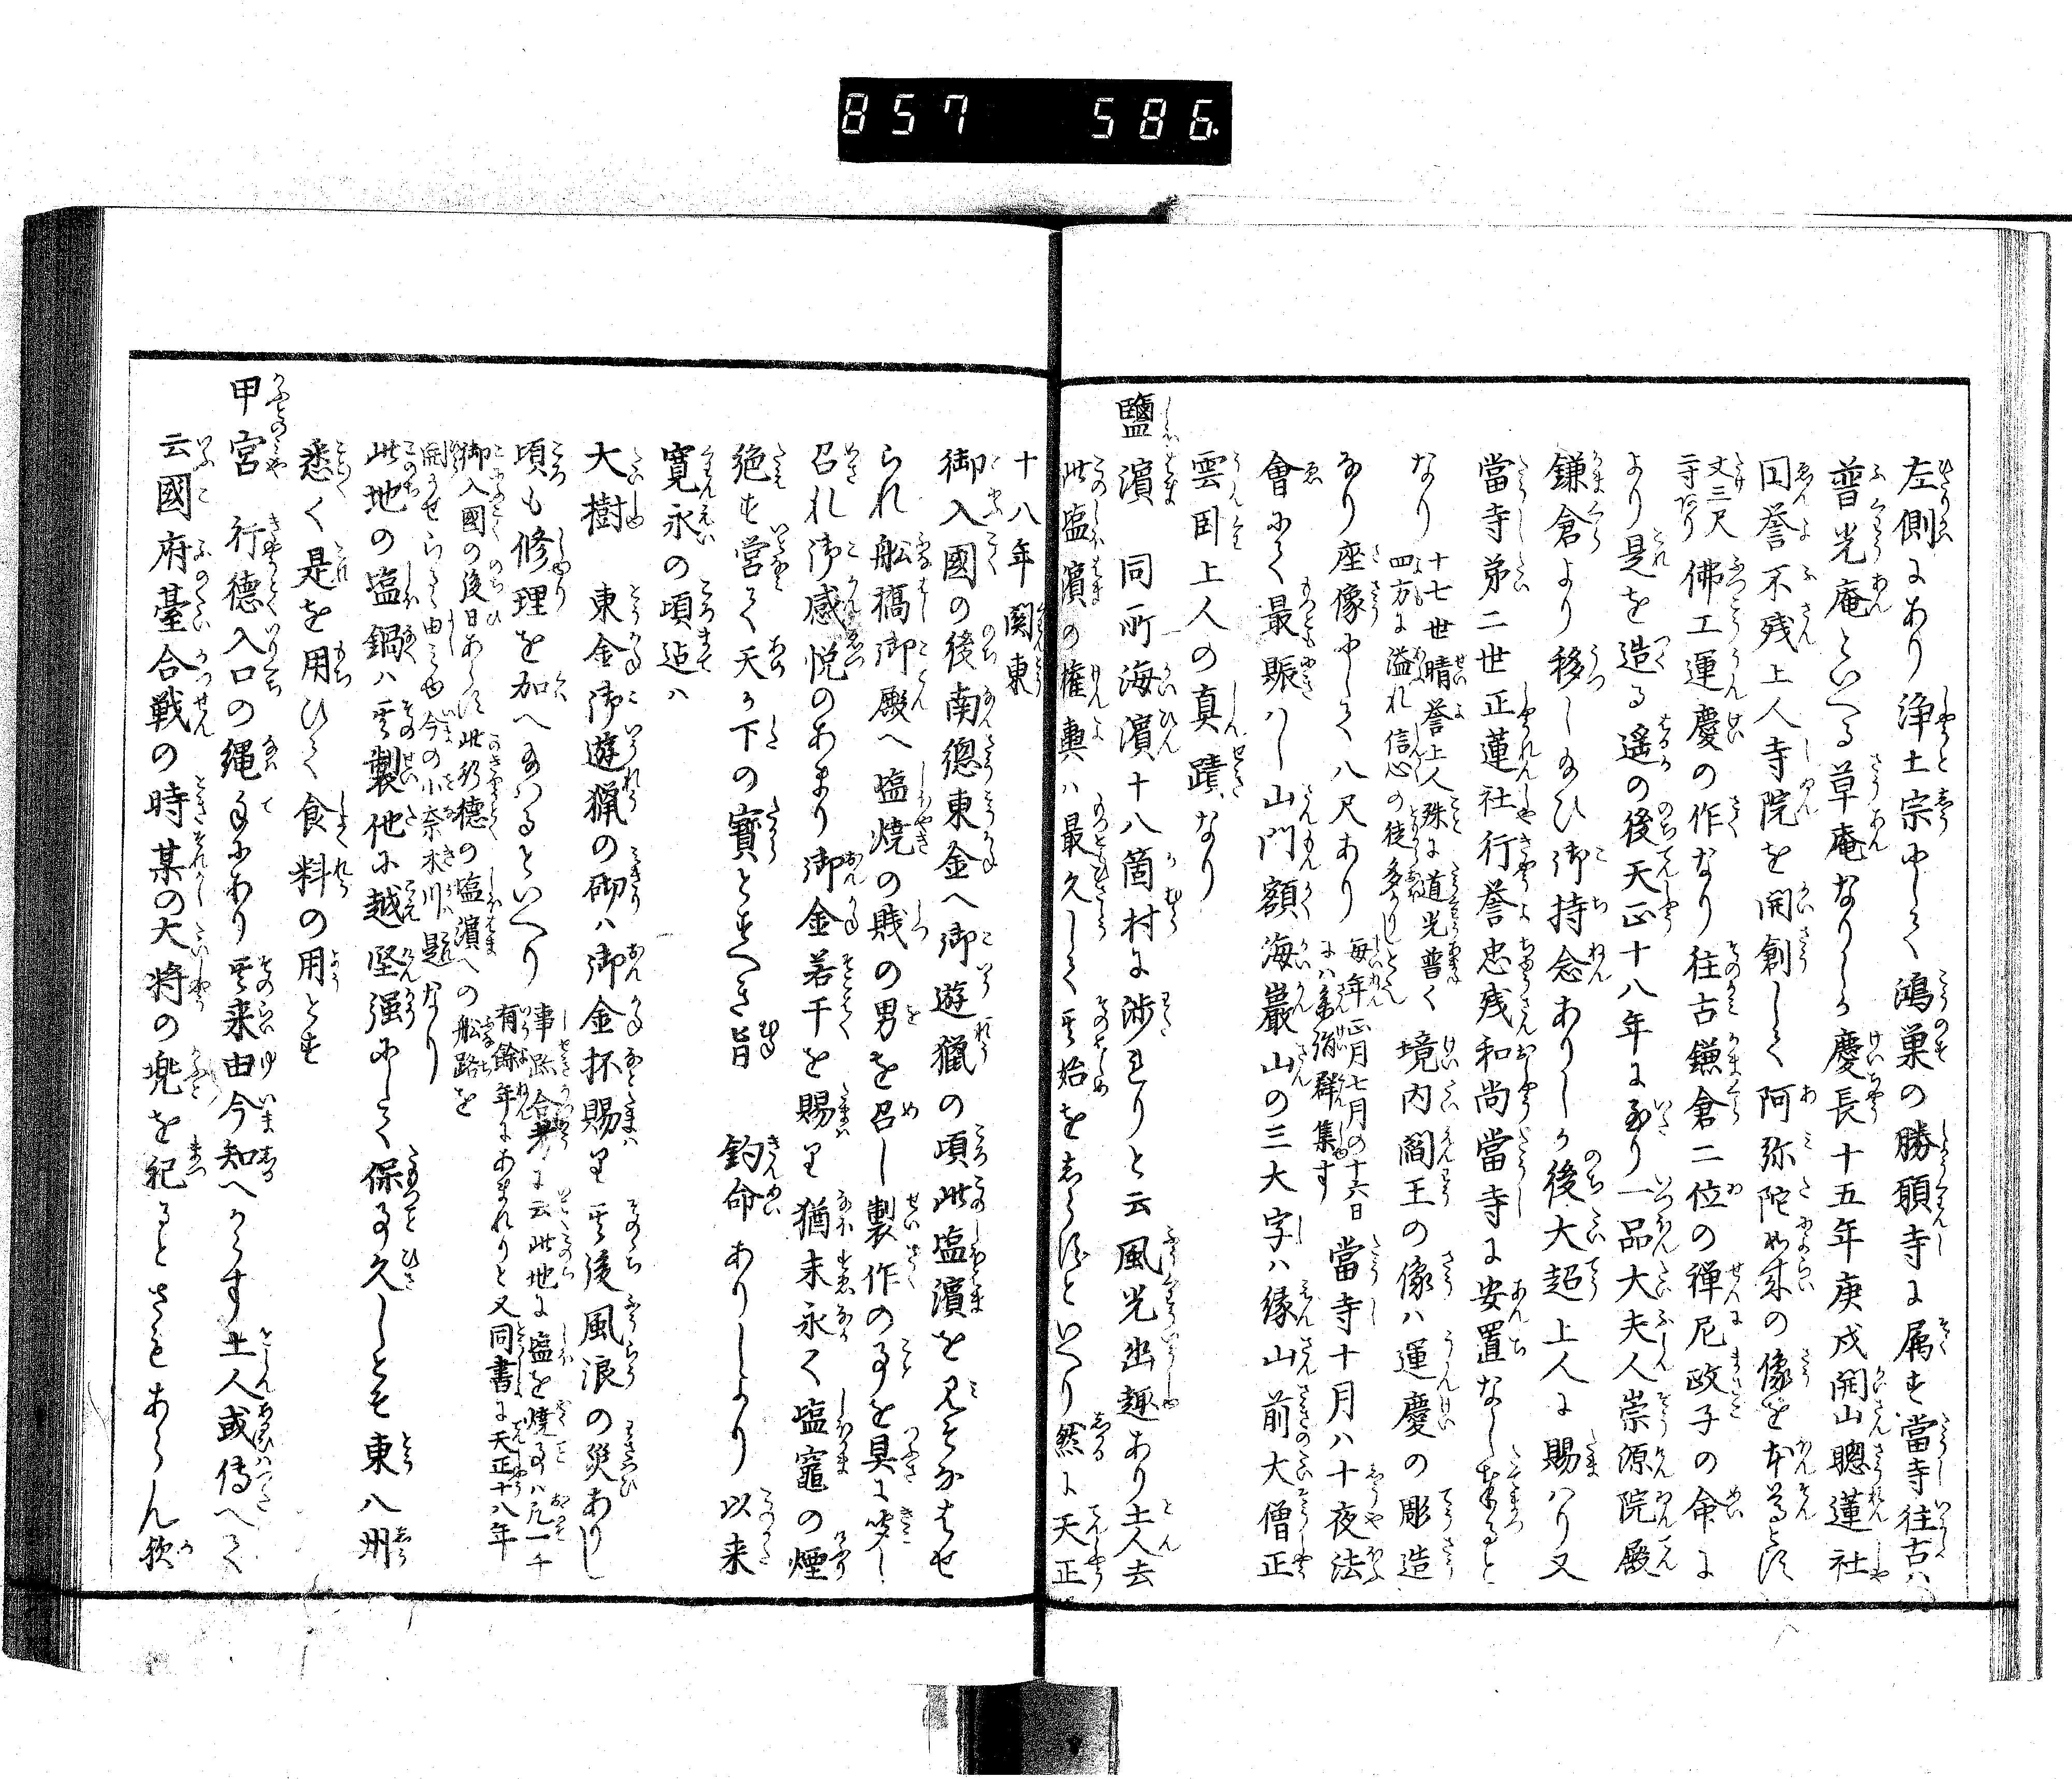 857 586.
左側にあり浄土宗にして鴻巣の勝願寺に属す當寺往古ハ
普光庵といへる草庵なりしか慶長十五年庚戌開山聰蓮社
円誉不残上人寺院を開創して阿弥陀如来の像を本尊とす
丈三尺二寸あり 佛工運慶の作なり往古鎌倉二位の禅尼政子の命に
より是を造る遙の後天正十八年に至り一品大夫人崇源院殿
鎌倉より移し給ひ御持念ありしか後大超上人に賜ハり又
當寺第二世正蓮社行誉忠残和尚當寺に安置なし奉ると
なり 十七世晴誉上人殊に道光普く四方に溢れ信心の徒多かりしとそ 境内閻王の像ハ運慶の彫造
なり座像にして八尺あり 毎年正月七月の十六日にハ参詣群集す 當寺十月ハ十夜法
會にて最賑ハし山門額海巖山の三大字ハ縁山前大僧正
雲臥上人の真蹟なり
鹽濱 同所海濱十八箇村に渉れりと云風光幽趣あり土人去
此塩濱の権輿ハ最久しくて其始をしらすといへり然に天正
十八年関東
御入國の後南總東金へ御遊獵の頃此塩濱を見そなはせ
られ舩橋御殿へ塩焼の賎の男を召し製作の事を具に聞し
召れ御感悦のあまり御金若干を賜り猶末永く塩竈の煙
絶す営て天か下の寳とすへき旨 鈞命ありしより以来
寛永の頃迠ハ
大樹 東金御遊猟の砌ハ御金抔賜り其後風浪の災ありし
頃も修理を加へ給ハるといへり 事跡合考に云此地に塩を焼事ハ凡一千有餘年にあまれりと又同書に天正十八年
御入國の後日あらす此行徳の塩濱への舩路を開かせらるゝ由みゆ今の小奈木川是なり
此地の塩鍋ハ其製他に越堅强にして保事久しとそ東八州
悉く是を用ひて食料の用とす
甲宮 行徳入口の縄手にあり其来由今知へからす土人或傳へて
云國府臺合戦の時某の大将の兜を祀るとさもあらん歟